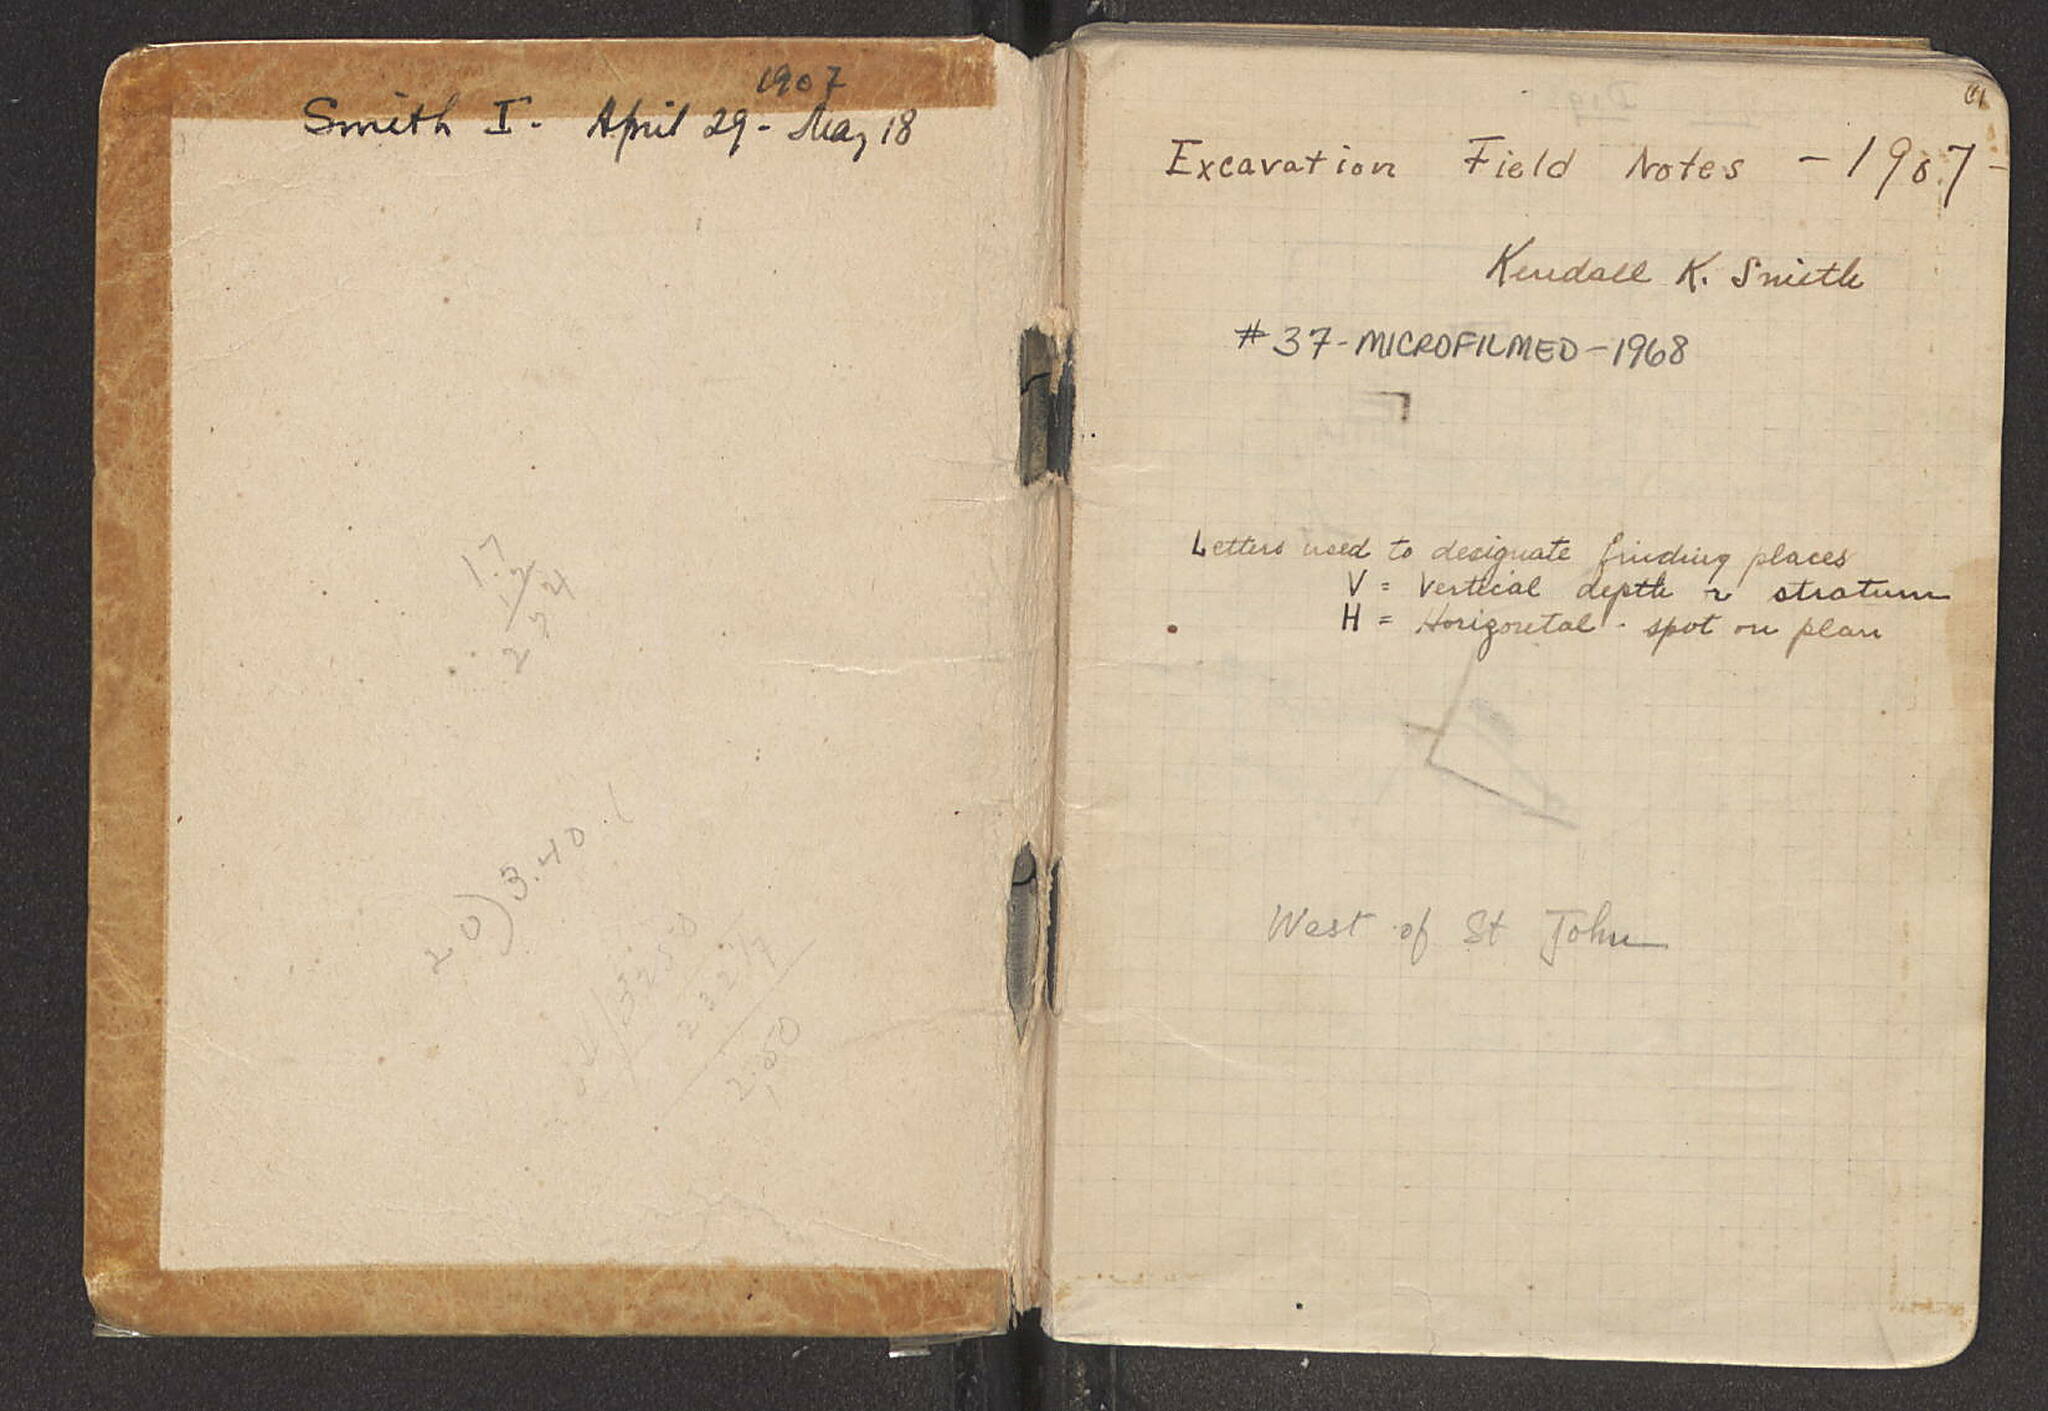 1907
Smith I. April 29 - May 18
1.7
1.7
20)3.40
3250
2.50
01
Excavation Field Notes - 1907 -
Kendall K. Smith
#37 - MICROFILMED - 1968
Letters used to designate finding places
V = Vertical depth stratum
H = Horizontal - spot on plan
West of St John